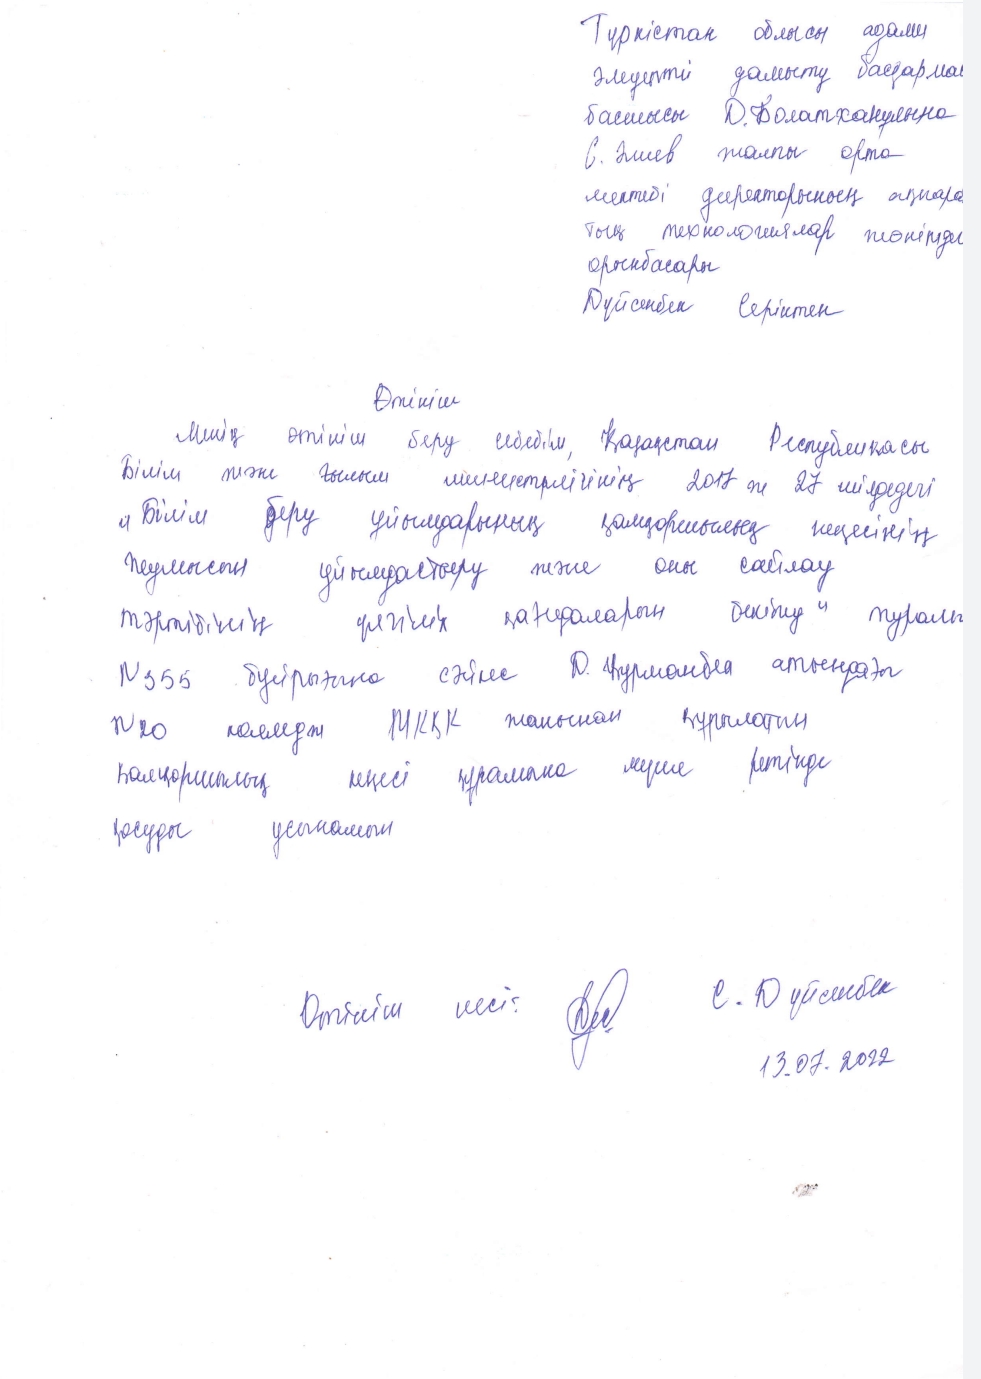 Түркістан облысы адами
әлеуетті дамыту басқарма
басшысы Д. Болатханұлына
С. Әлиев жалпы орта
мектебі директорының ақпарат
тық технологиялар жөнінде
орынбасары
Дүйсенбек Серікпен
Өтініш
Менің өтініш беру себебім, Қазақстан Республикасы
Білім және Ғылым министрлігінің 2017 ж 27 шілдедегі
"Білім беру ұйымдарының қамқоршылық кеңесінің
жұмысын ұйымдастыру және оны сайлау
тәртібінің үлгілік қағидаларын бекіту" туралы
N355 бұйрығына сәйкес Д. Құрманбек атындағы
N20 колледж МКҚК жанынан құрылатын
Қамқоршылық кеңесі құрамына мүше ретінде
қосуды ұсынамын
Өтініш иесі: С. Дүйсенбек
13.07.2022